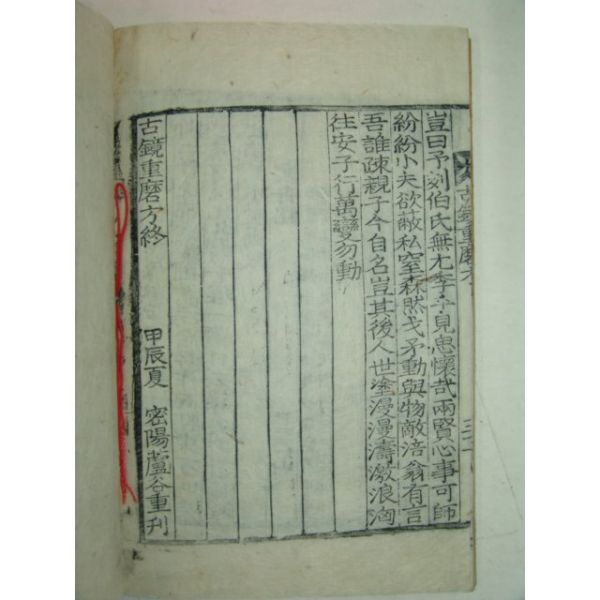 古鏡重磨方
豈曰予剡伯氏無尤季今見忠懷哉兩賢心事可師
紛紛小夫欲蔽私窒森然戈矛動與物敵涪翁有言
吾誰疎親子今自名豈其後人世塗漫漫濤激浪洶
往安子行萬變勿動
古鏡重磨方終
甲辰夏 密陽蘆谷重刊